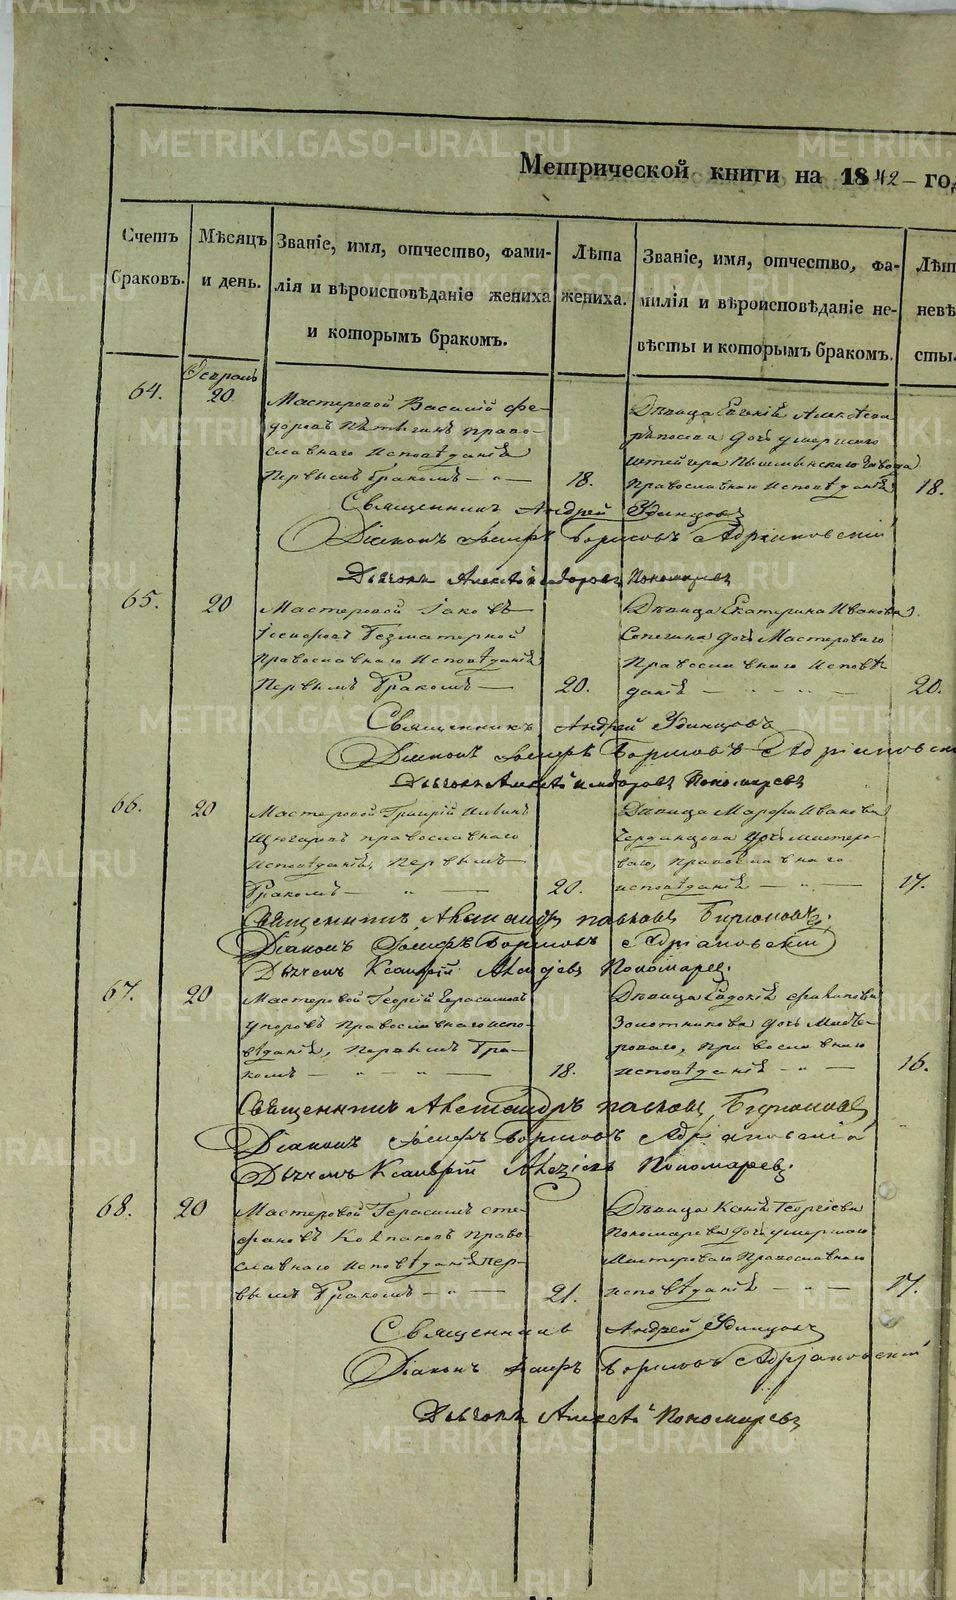 Метрической книги на 1842 – год
Счетъ браковъ.
Мѣсяцъ и день.
Званіе, имя, отчество, фами-
лія и вѣроисповѣданіе жениха
и которымъ бракомъ.
Лѣта жениха.
Званіе, имя, отчество, фа-
милія и вѣроисповѣданіе не-
вѣсты и которымъ бракомъ.
Лѣт
невѣ
сты.
64.
20
Мастеровой Василій Фе-
доровъ право-
славнаго исповѣданія
первымъ бракомъ — „ —
18.
Дѣвица Алексѣева
дочь умершаго
штейгера Пышминскаго завода
православнаго исповѣданія
18.
Священникъ Андрей Удинцовъ
Діаконъ Іосифъ Борисовъ Адріановскій
Дьячокъ Алексѣй Пономаревъ
65.
20
Мастеровой Іаковъ
Безматерной
православнаго исповѣданія
первымъ бракомъ —
20.
Дѣвица Екатерина Иванова
Сапегина дочь мастероваго
православнаго исповѣ-
данія —
20.
Священникъ Андрей Удинцовъ
Діаконъ Іосифъ Борисовъ Адріановскій
Дьячокъ Алексѣй Пономаревъ
66.
20
Мастеровой Григорій
православнаго
исповѣданія, первымъ
бракомъ — „ —
20.
Дѣвица Марфа Иванова
дочь мастеро-
ваго, православнаго
исповѣданія — „ —
17.
Священникъ Александръ
Діаконъ Іосифъ Борисовъ Адріановскій
Дьячекъ Пономаревъ.
67.
20
Мастеровой Георгій Герасимовъ
Упоровъ православнаго испо-
вѣданія, первымъ бра-
комъ — „ — „ —
18.
Дѣвица Евдокія
Золотникова дочь масте-
роваго, православнаго
исповѣданія — „ —
16.
Священникъ Александръ
Діаконъ Іосифъ Борисовъ Адріановскій
Дьячекъ Пономаревъ.
68.
20
Мастеровой Герасимъ Сте-
фановъ Колпаковъ право-
славнаго исповѣданія пер-
вымъ бракомъ — „ —
21.
Дѣвица Ксенія Георгіева
Пономарева дочь умершаго
мастероваго православнаго
исповѣданія — „ —
17.
Священникъ Андрей Удинцовъ
Діаконъ Іосифъ Борисовъ Адріановскій
Дьячокъ Алексѣй Пономаревъ
METRIKI.GASO-URAL.RU